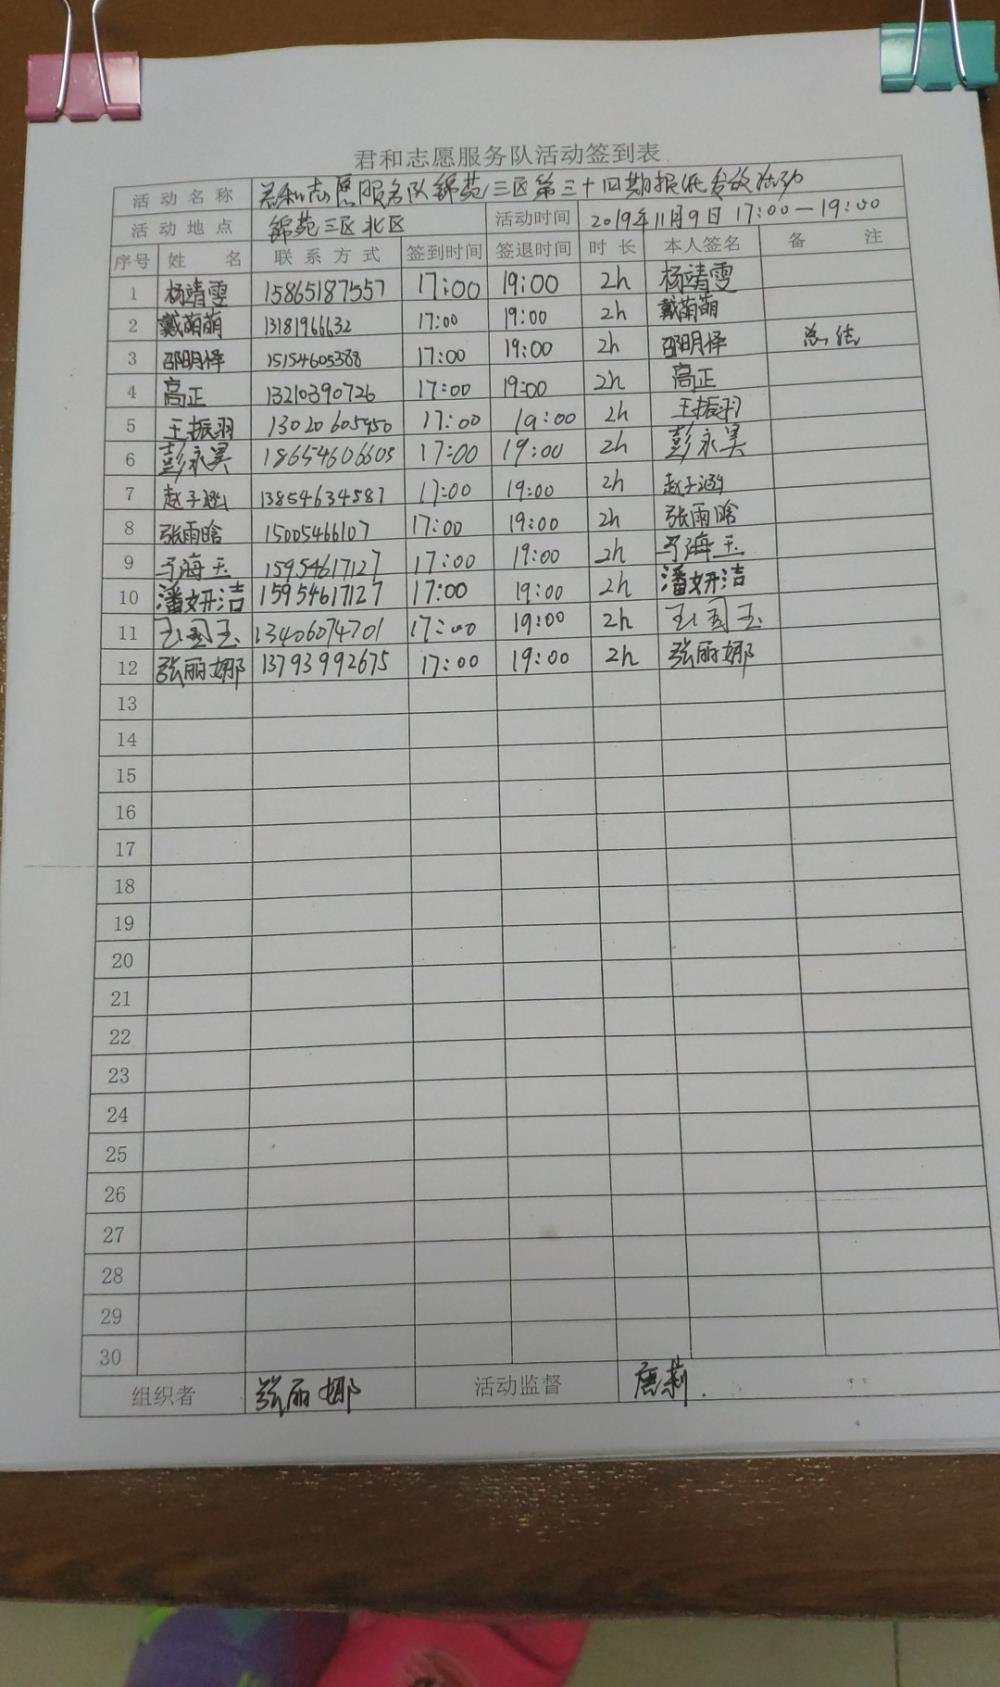 君和志愿服务队活动签到表
活动名称 君和志愿服务队锦苑三区第三十四期报纸发放活动
活动地点 锦苑三区北区 活动时间 2019年11月9日 17:00—19:00
序号 姓名 联系方式 签到时间 签退时间 时长 本人签名 备注
1 杨靖雯 15865187557 17:00 19:00 2h 杨靖雯
2 戴萌萌 13181966632 17:00 19:00 2h 戴萌萌
3 邵明怿 15154605388 17:00 19:00 2h 邵明怿 总结
4 高正 13210390726 17:00 19:00 2h 高正
5 王振羽 13020605450 17:00 19:00 2h 王振羽
6 彭永昊 18654606603 17:00 19:00 2h 彭永昊
7 赵子涵 13854634587 17:00 19:00 2h 赵子涵
8 张雨晗 15005466107 17:00 19:00 2h 张雨晗
9 于海玉 15954617127 17:00 19:00 2h 于海玉
10 潘妍洁 15954617127 17:00 19:00 2h 潘妍洁
11 王国玉 13406074701 17:00 19:00 2h 王国玉
12 张丽娜 13793992675 17:00 19:00 2h 张丽娜
13
14
15
16
17
18
19
20
21
22
23
24
25
26
27
28
29
30
组织者 张丽娜 活动监督 唐莉.